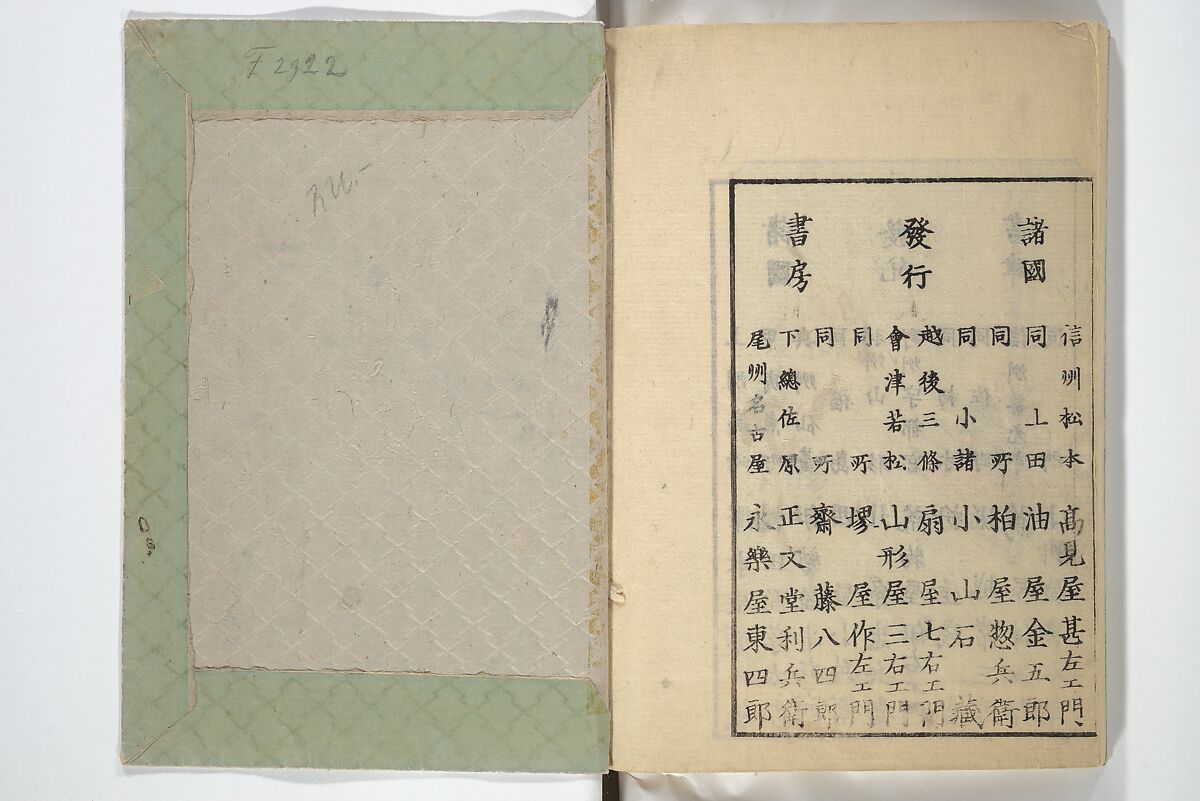 諸國
發行
書房
信州松本 高見屋甚左エ門
同 上田 油屋金五郎
同 所 柏屋惣兵衛
同 小諸 小山石藏
越後三條 扇屋七右エ門
會津若松 山形屋三右エ門
同 所 堺屋作左エ門
同 所 齋藤八四郎
下總佐原 正文堂利兵衛
尾州名古屋 永樂屋東四郎
F 2922